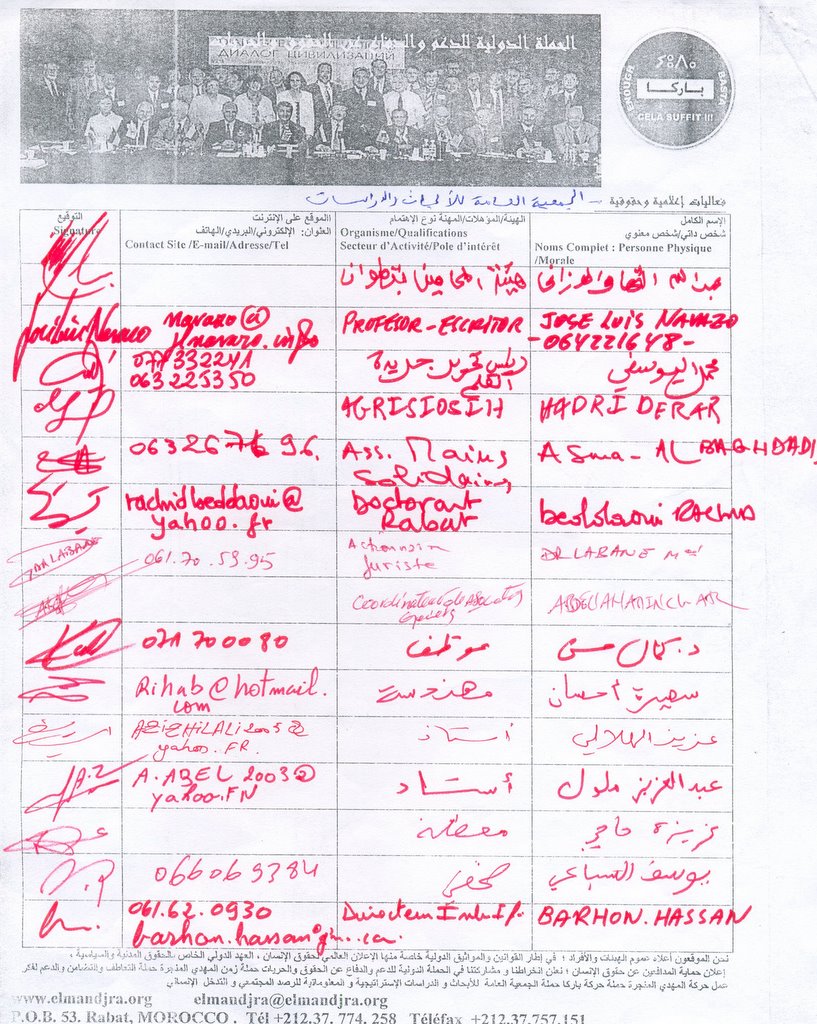 الحملة الدولية للدعم والدفاع عن الحقوق
ДИАЛОГ ЦИВИЛИЗАЦИЙ
ENOUGH
ⵢⴻⴷⴰ
BASTA
باركا
CELA SUFFIT !!!
فعاليات إعلامية وحقوقية – الجمعية العامة للأبحاث والدراسات
التوقيع
Signature
الموقع على الإنترنت
العنوان: الإلكتروني/البريدي/الهاتف
Contact Site /E-mail/Adresse/Tel
الهيئة/المؤهلات/المهنة نوع الإهتمام
Organisme/Qualifications
Secteur d'Activité/Pole d'intérêt
الإسم الكامل
شخص ذاتي/شخص معنوي
Noms Complet : Personne Physique
/Morale
هيئة المحامين بتطوان
عبد الله
navazo@
navazo.info
PROFESOR-ESCRITOR
JOSE LUIS NAVAZO
-064221648-
077332241
063225350
رئيس تحرير جريدة
القلم
محمد اليوسفي
AGRISIOSIH
HADRI DERAR
0632676 96.
Ass. Mains
Solidaires
Asma - AL BAGHDADI
rachidbeddaoui@
yahoo.fr
Doctorant
Rabat
beddaoui RACHID
DR LABANE
061.70.59.95
Juriste
DR LABANE Med
Coordinateur de
071 700080
موظف
د. كمال حسن
Rihab@hotmail.
com
مهندسة
سميرة إحسان
AZIZHILALI2005@
yahoo.FR.
أستاذ
عزيز الهلالي
A.Z
A.ABEL 2003@
yahoo.FN
أستاذ
عبد العزيز ملوك
معطلة
عزيزة حاجي
066069384
صحفي
يوسف السباعي
061.62.0930
barhon.hassan@
Directeur
BARHON.HASSAN
نحن الموقعون أعلاه عموم الهيئات والأفراد ؛ في إطار القوانين والمواثيق الدولية خاصة منها الإعلان العالمي لحقوق الإنسان ، العهد الدولي الخاص بالحقوق المدنية والسياسية ،
إعلان حماية المدافعين عن حقوق الإنسان ؛ نعلن انخراطنا و مشاركتنا في الحملة الدولية للدعم والدفاع عن الحقوق والحريات حملة زمن المهدي المنجرة حملة التعاطف والتضامن والدعم لفكر
عمل حركة المهدي المنجرة حملة حركة باركا حملة الجمعية العامة للأبحاث و الدراسات الإستراتيجية و المعلوماتية للرصد المجتمعي و التدخل الإنساني
www.elmandjra.org elmandjra@elmandjra.org
P.O.B. 53. Rabat, MOROCCO , Tél +212.37. 774. 258 Téléfax +212.37.757.151